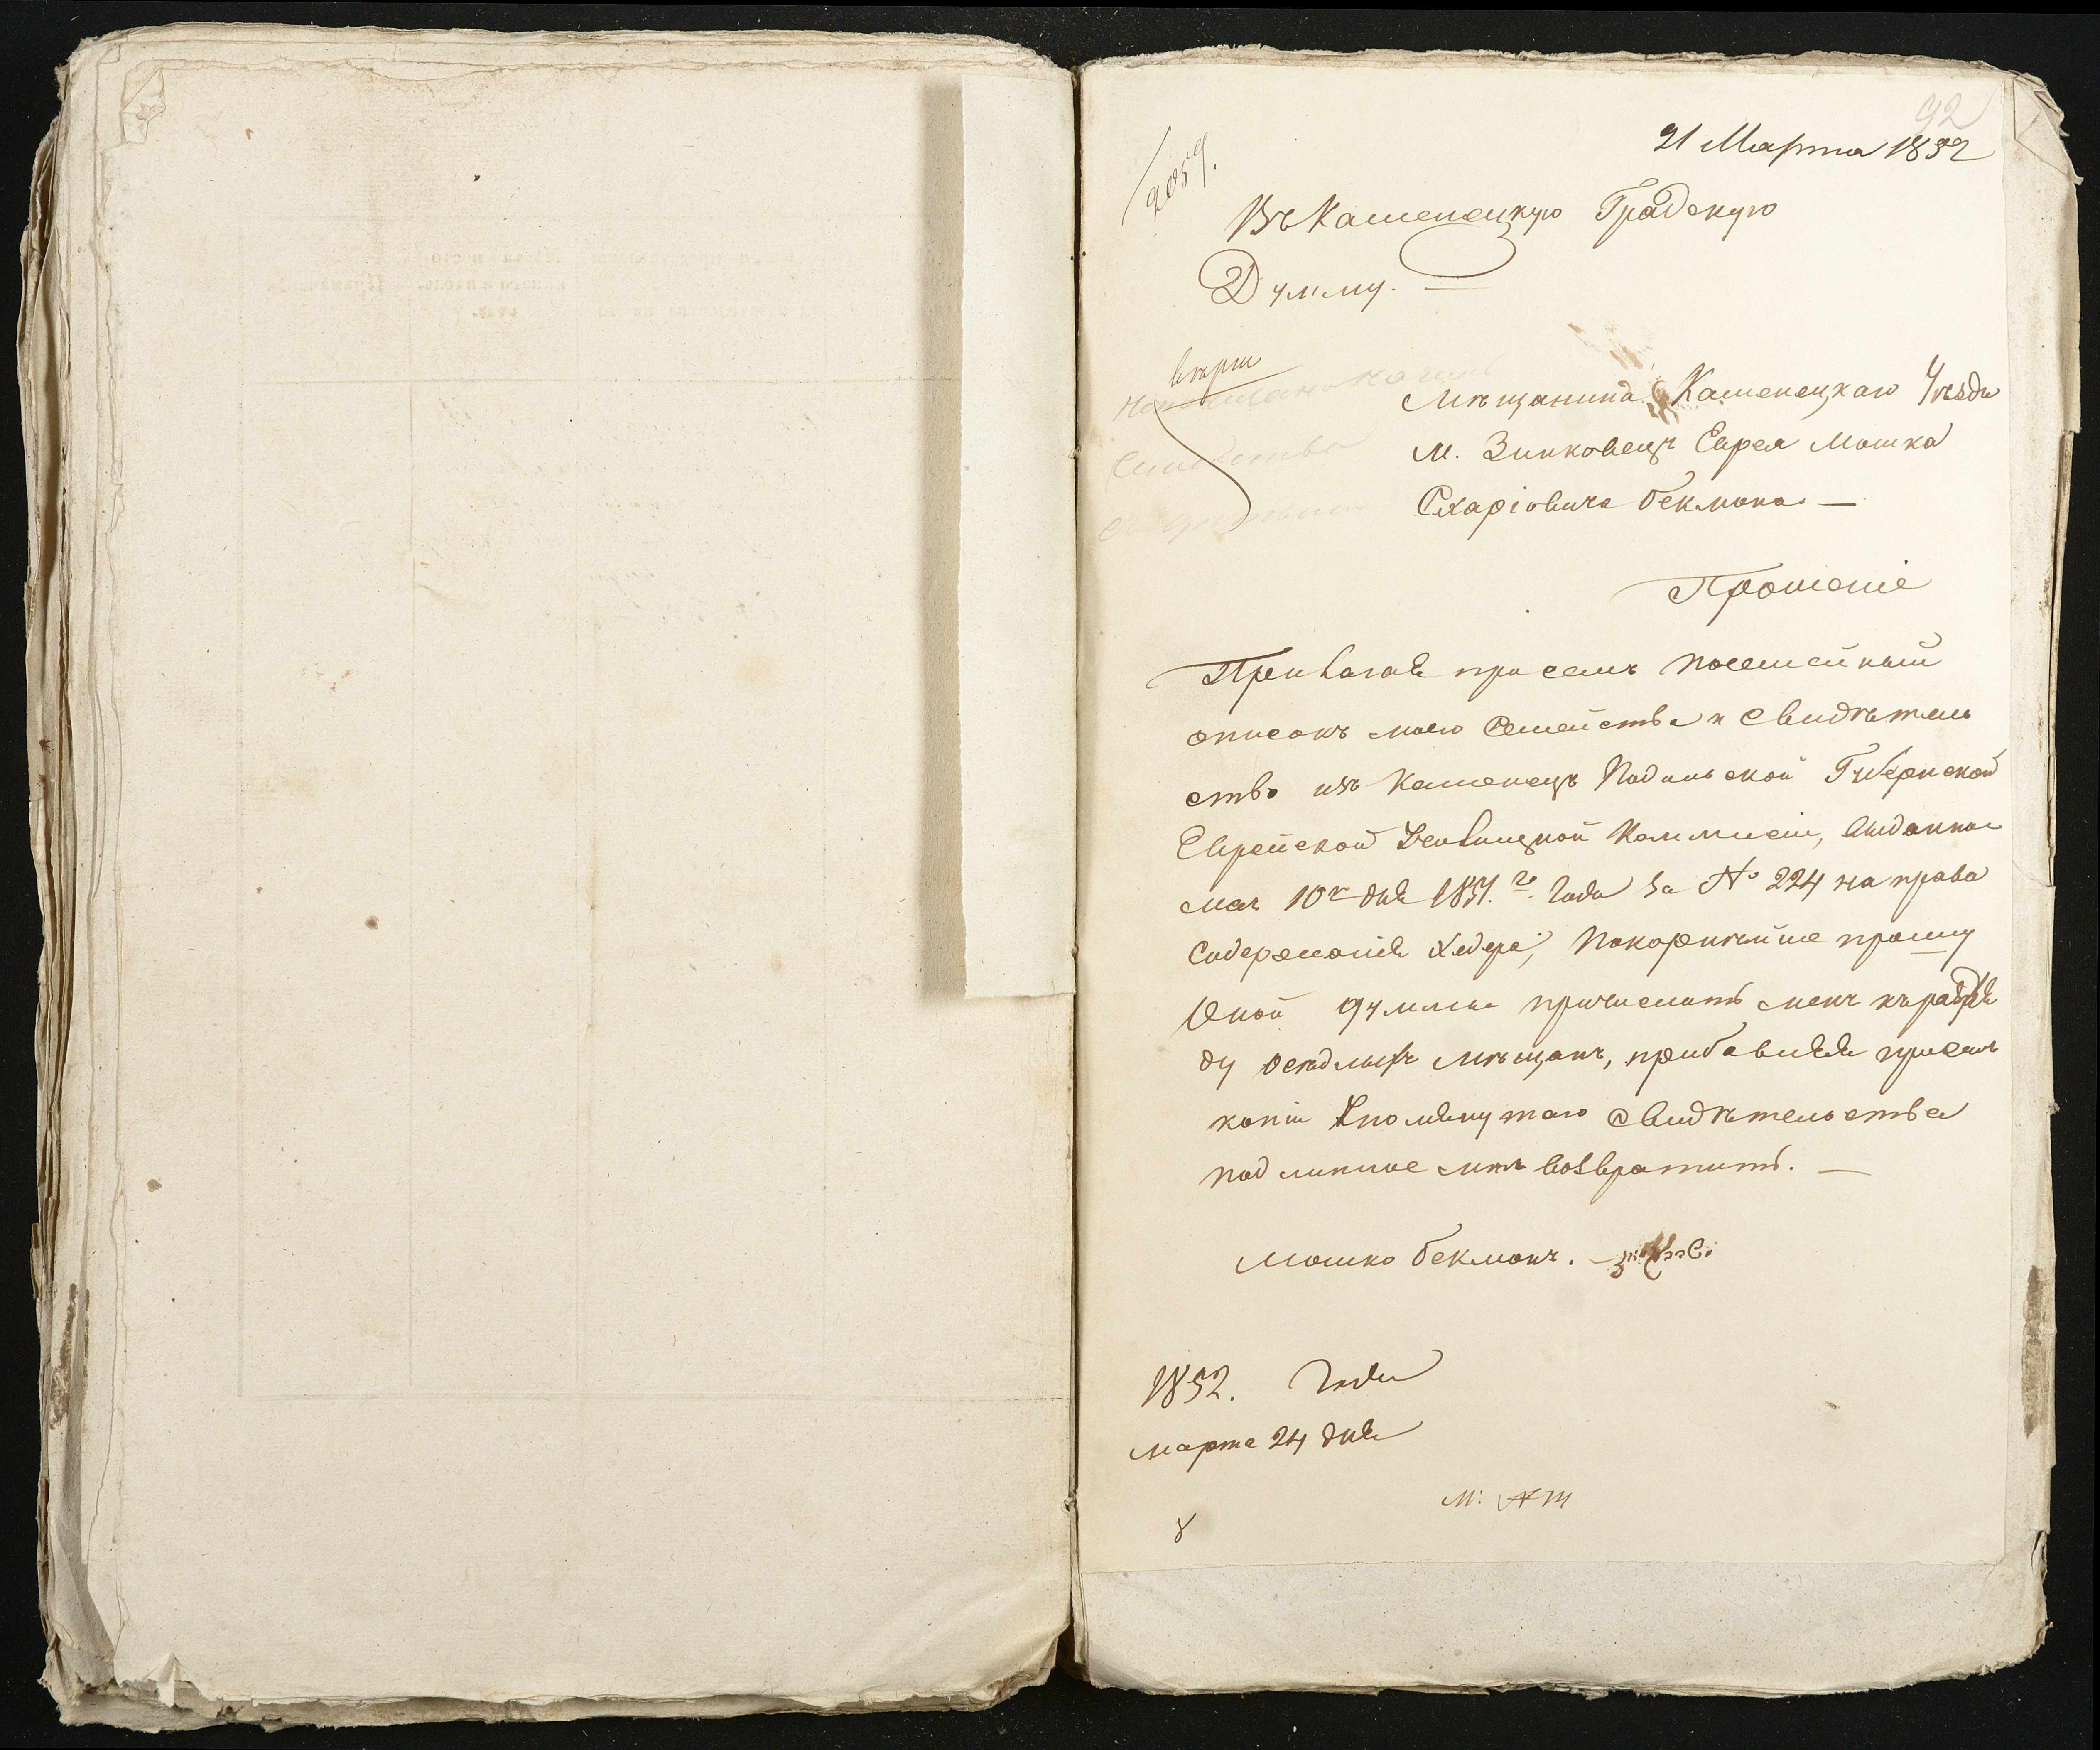 92
21 Марта 1852
2057.
Въ Каменецкую Градскую
Думму. —
Мѣщанина Каменецкаго Уѣзда
м. Зинковецъ Еврея Мошка
Бекмана —
Прошеніе
Прилагая при семъ посемейный
списокъ моего Семейства и Свидѣтель
ство изъ Каменецъ Подольской Губернской
Еврейской Коммисіи, выданное
мая 10 дня 1851.го Года за № 224 на право
Содержанія Хедера, Покорнѣйше прошу
Оной Думмы причислить меня къ разря
ду осѣдлыхъ мѣщанъ, прибавляя присемъ
копіи Упомянутаго Свидѣтельства
подлинное мнѣ возвратить. —
Мошко Бекманъ.
1852. Года
марта 24 дня
8